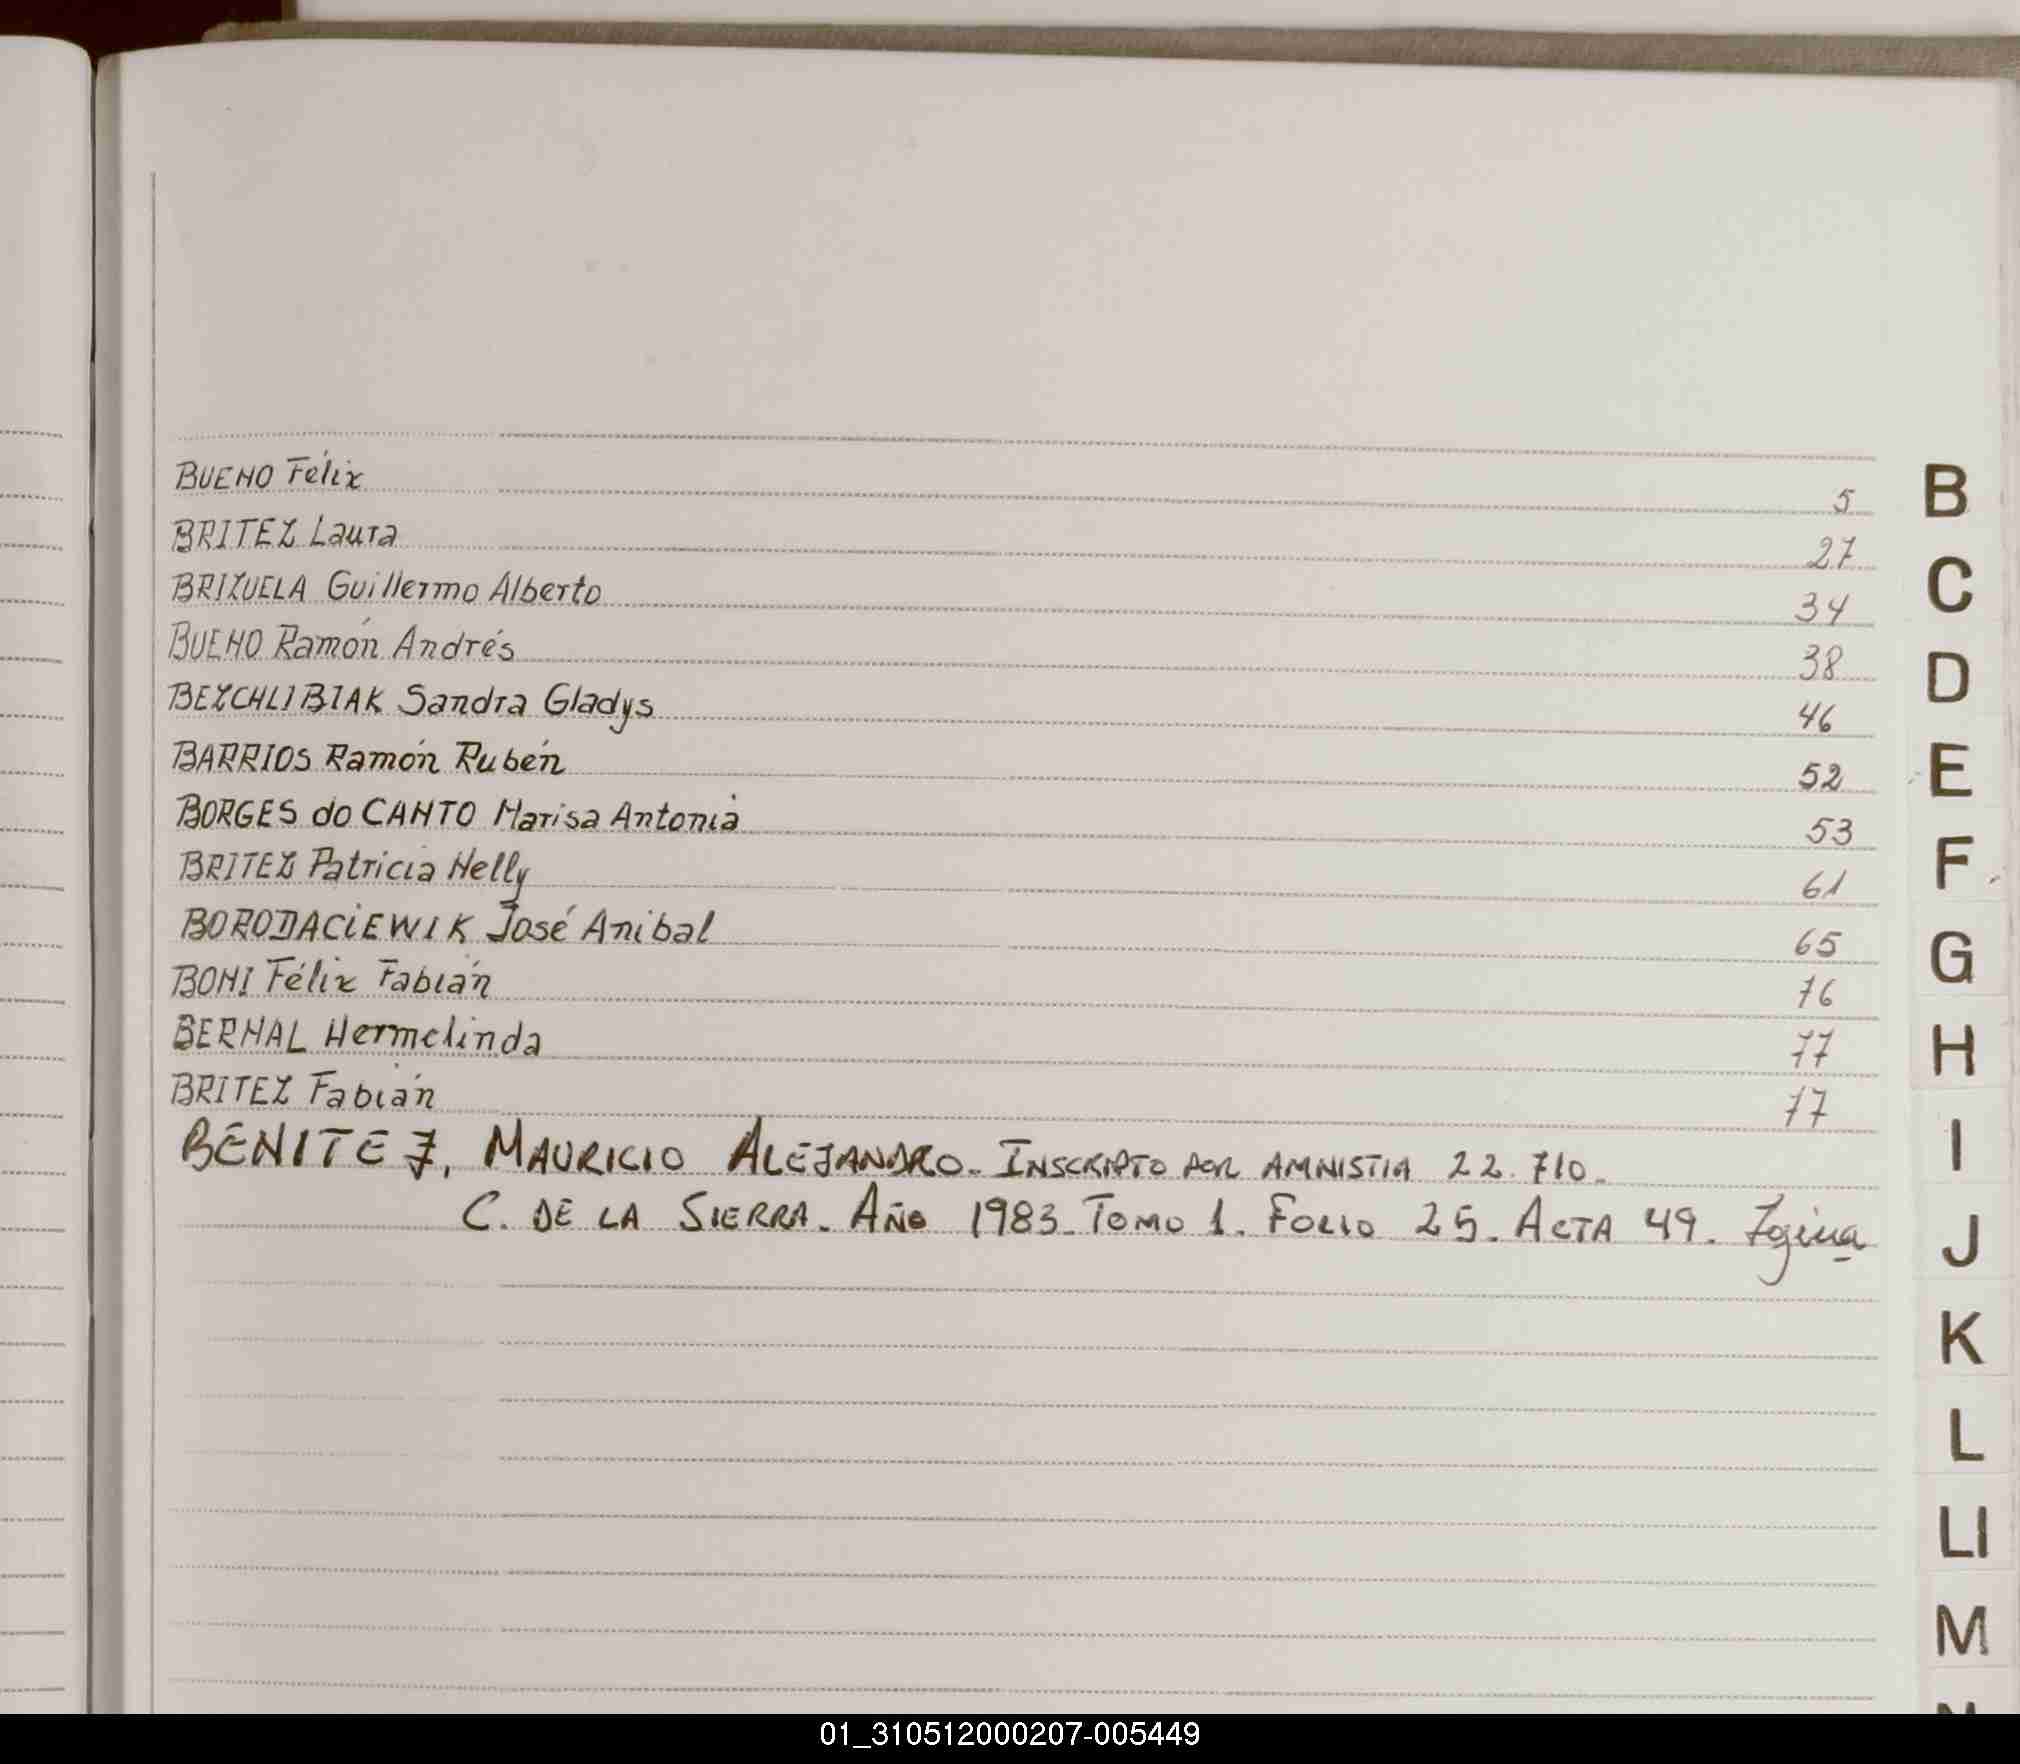 BUENO Félix 5
BRITEZ Laura 27
BRIZUELA Guillermo Alberto 34
BUENO Ramón Andrés 38
BEZCHLIBIAK Sandra Gladys 46
BARRIOS Ramón Rubén 52
BORGES do CANTO Marisa Antonia 53
BRITEZ Patricia Nelly 61
BORODACIEWIK José Anibal 65
BONI Félix Fabián 76
BERNAL Hermelinda 77
BRITEZ Fabián 77
BENITEZ, MAURICIO ALEJANDRO. INSCRIPTO POR AMNISTIA 22.710.
C. DE LA SIERRA. AÑO 1983. TOMO 1. FOLIO 25. ACTA 49.
B
C
D
E
F
G
H
I
J
K
L
Ll
M
01_310512000207-005449